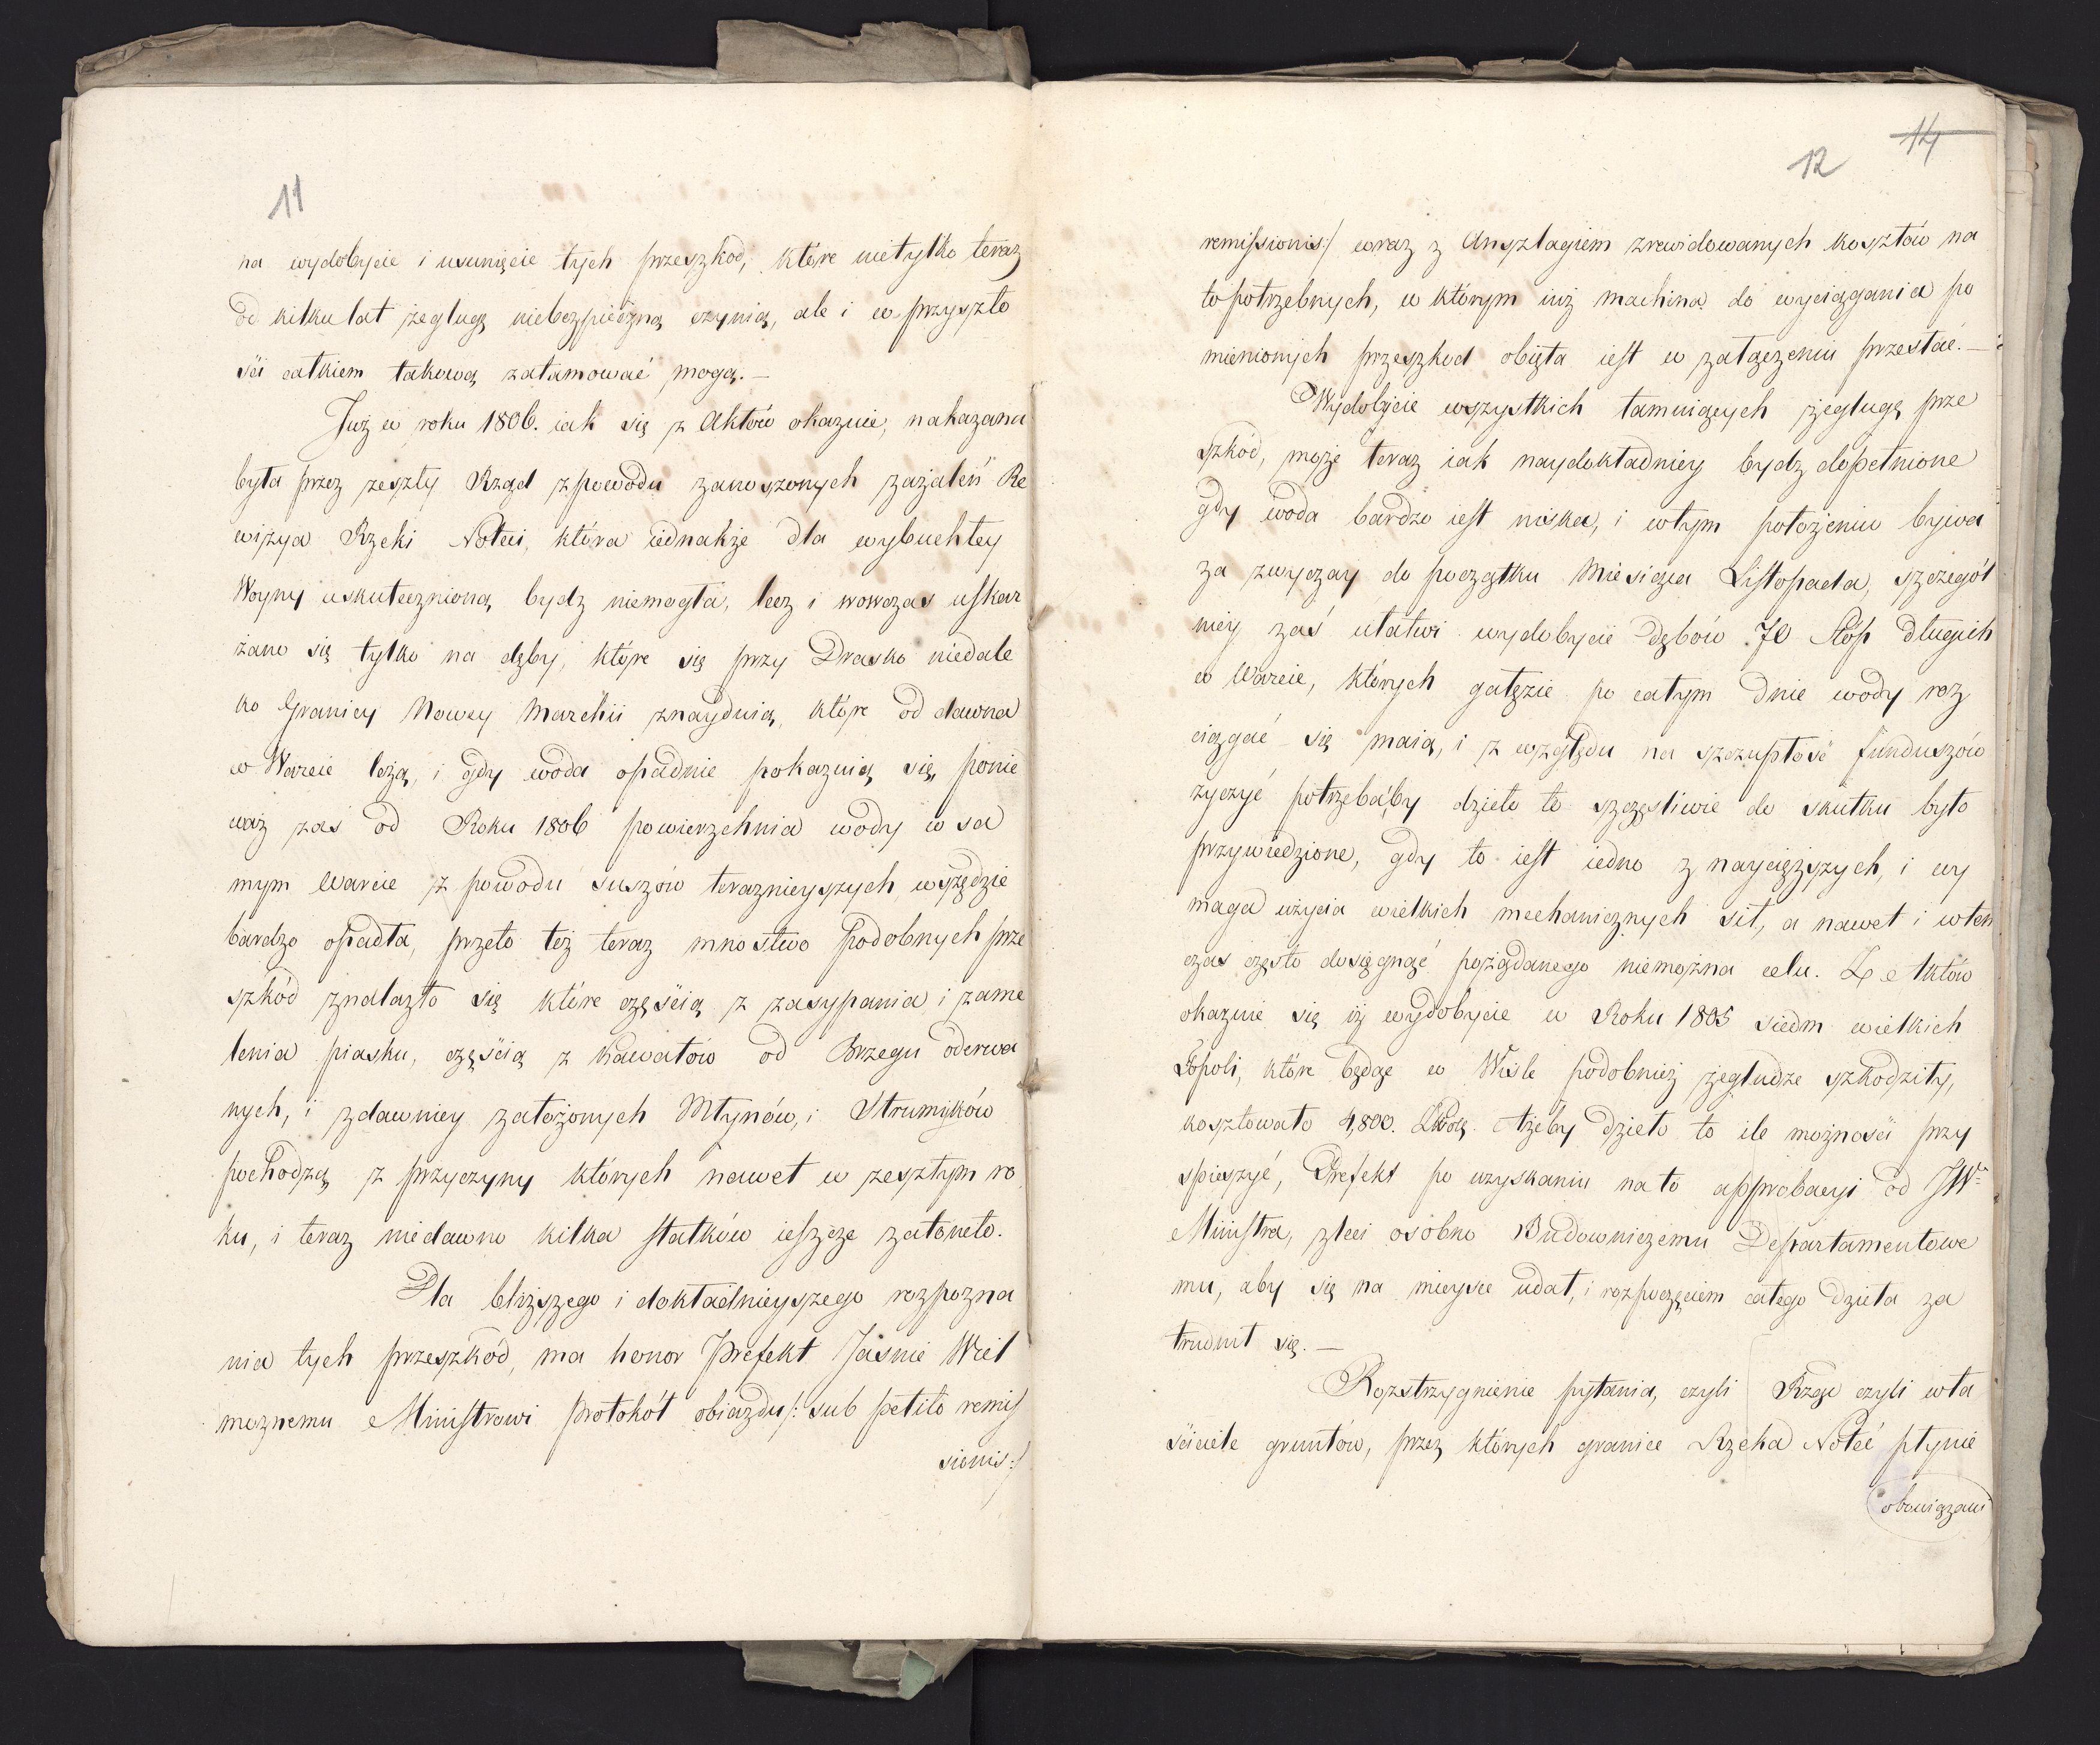 11
na wydobycie i usunięcie tych przeszkod, które nietylko teraz
od kilku lat żeglugę niebezpieczną czynią, ale i w przyszło
ści całkiem takową zatamować mogą. —
Już w roku 1806. iak się z Aktów okazuie, nakazana
była przez zeszły Rząd z powodu zanoszonych zażaleń Re
wizya Rzeki Noteci, która iednakże dla wybuchłey
Woyny uskutecznioną bydz niemogła, lecz i wowczas uskar
żano się tylko na dęby, które się przy Drasko niedale
ko Granicy Nowey Marchii znayduią, które od dawna
w Warcie leżą, i gdy woda opadnie pokazuią się, ponie
waż zas od Roku 1806 powierzchnia wody w sa
mym Warcie z powodu suszów teraznieyszych wszędzie
bardzo opadła, przeto też teraz mnostwo podobnych prze
szkód znalazło się które częścią z zasypania i zame
lenia piasku, częścią z kawałów od Brzegu oderwa
nych, i zdawniey założonych Młynów, i Strumyków
pochodzą z przyczyny których nawet w zeszłym ro
ku, i teraz niedawno kilka statków ieszcze zatoneło.
Dla bliższego i dokładnieyszego rozpozna
nia tych przeszkód, ma honor Prefekt Jasnie Wiel
moznemu Ministrowi protokół obiazdu /: sub petito remis
sionis :/
12 14
remissionis :/ wraz z Anszlagiem zrewidowanych kosztów na
to potrzebnych, w którym iuż machina do wyciągania po
mienionych przeszkod obięta iest w załączeniu przesłać. —
Wydobycie wszystkich tamuiących żeglugę prze
szkód, może teraz iak naydokładniey bydz dopełnione
gdy woda bardzo iest niska, i w tym położeniu bywa
za zwyczay do początku Miesiąca Listopada, szczegól
niey zaś ułatwi wydobycie Dębów 70 Stóp długich
w Warcie, których gałęzie po całym dnie wody roz
ciągać się maią, i z względu na szczupłość funduszów
zyczyć potrzeba, by dzieło to szczęsliwie do skutku było
przywiedzione, gdy to iest iedno z naycięższych, i wy
maga użycia wielkich mechanicznych sił, a nawet i wten
czas często dosięgnąć pożądanego niemożna celu. Z Aktów
okazuie się iż wydobycie w Roku 1805 siedm wielkich
Topoli, które będąc w Wiśle podobnież żegludze szkodziły,
kosztowało 4,800. Ażeby dzieło to ile możności przy
spieszyć, Prefekt po uzyskaniu na to approbacyi od JW
Ministra, zleci osobno Budowniczemu Departamentowe
mu, aby się na mieysce udał, i rozpoczęciem całego dzieła za
trudnił się. —
Rozstrzygnienie pytania, czyli Rząd czyli wła
ściciele gruntów, przez których granice Rzeka Noteć płynie
obowiązani